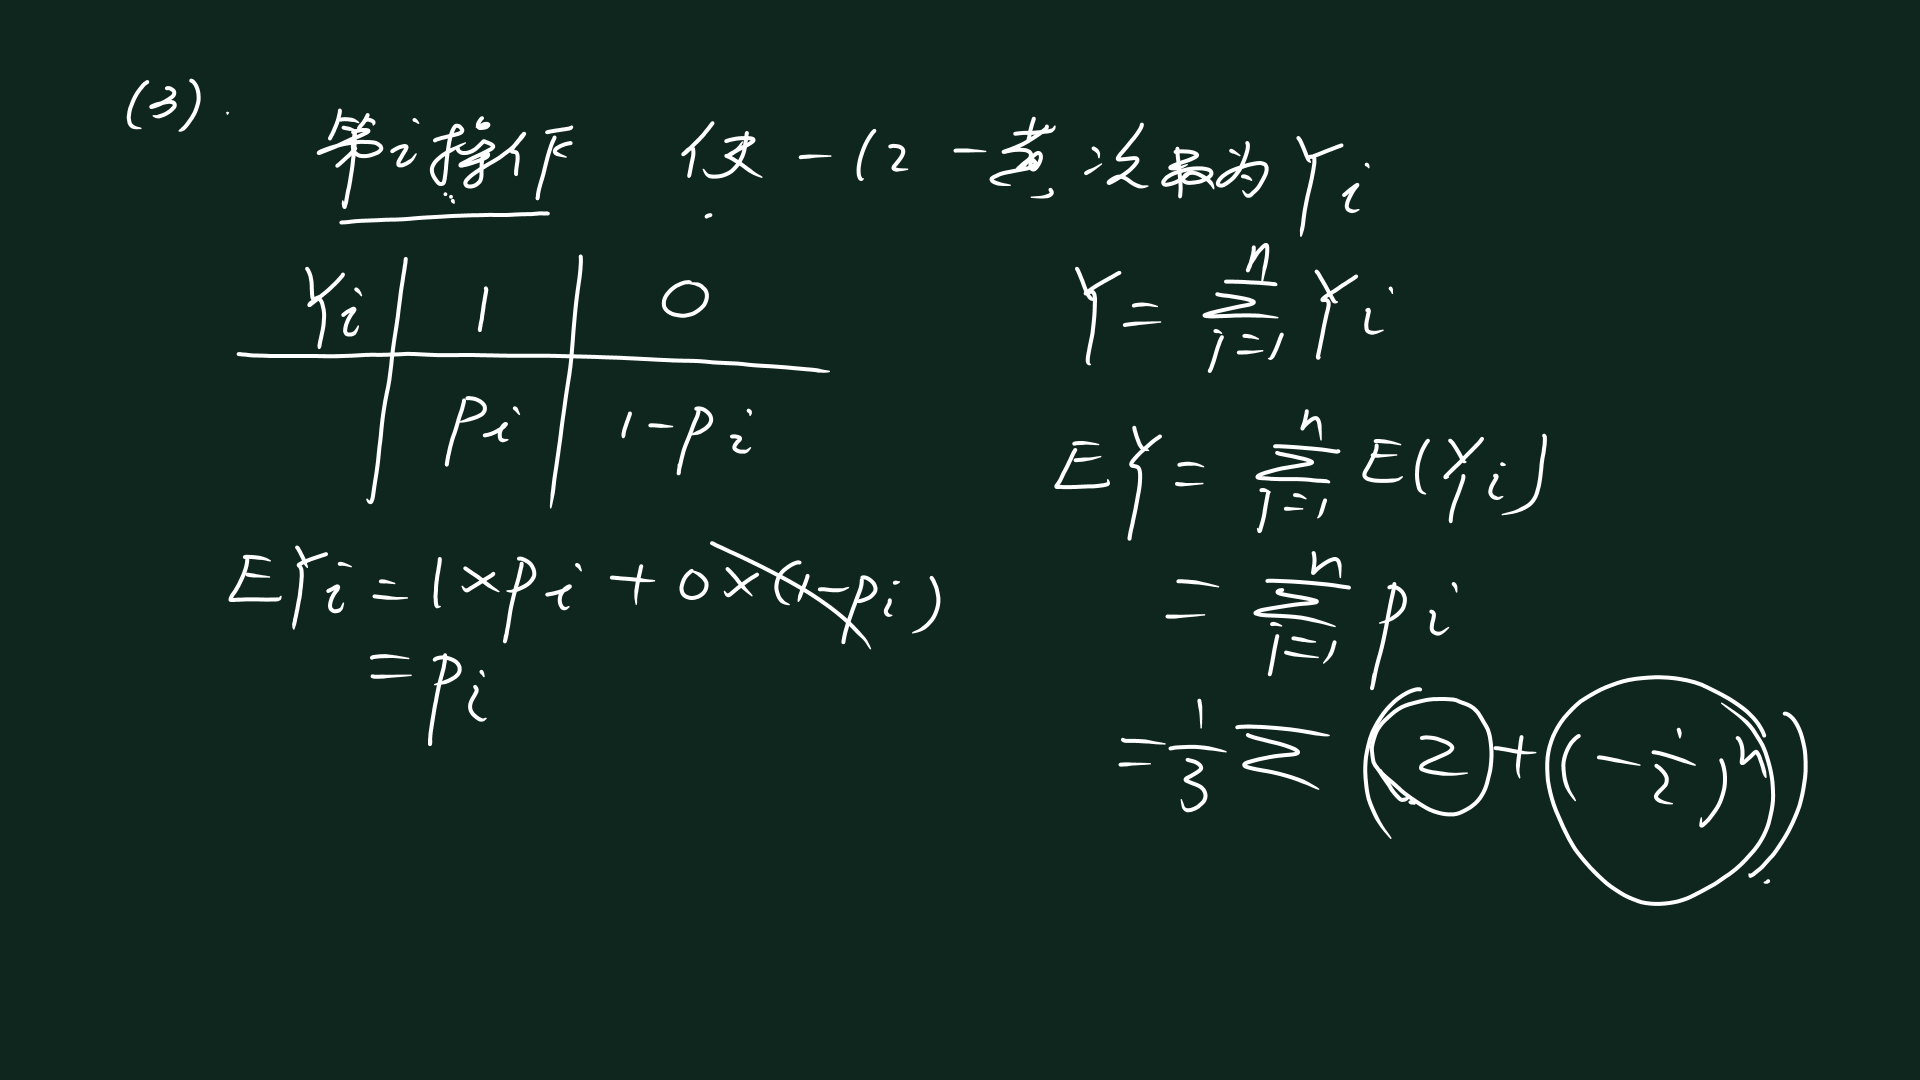 (3).
第i操作 使一红一黄次数为 Yi
Yi | 1 | 0
pi | 1-pi
EYi = 1×pi + 0×(1-pi)
= pi
Y = Σ_{i=1}^{n} Yi
EY = Σ_{i=1}^{n} E(Yi)
= Σ_{i=1}^{n} pi
= 1/3 Σ (2 + (-1/2)^n)